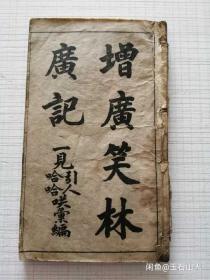 增廣笑林
廣記
一見引人哈哈咲彙編
闲鱼@玉石山人